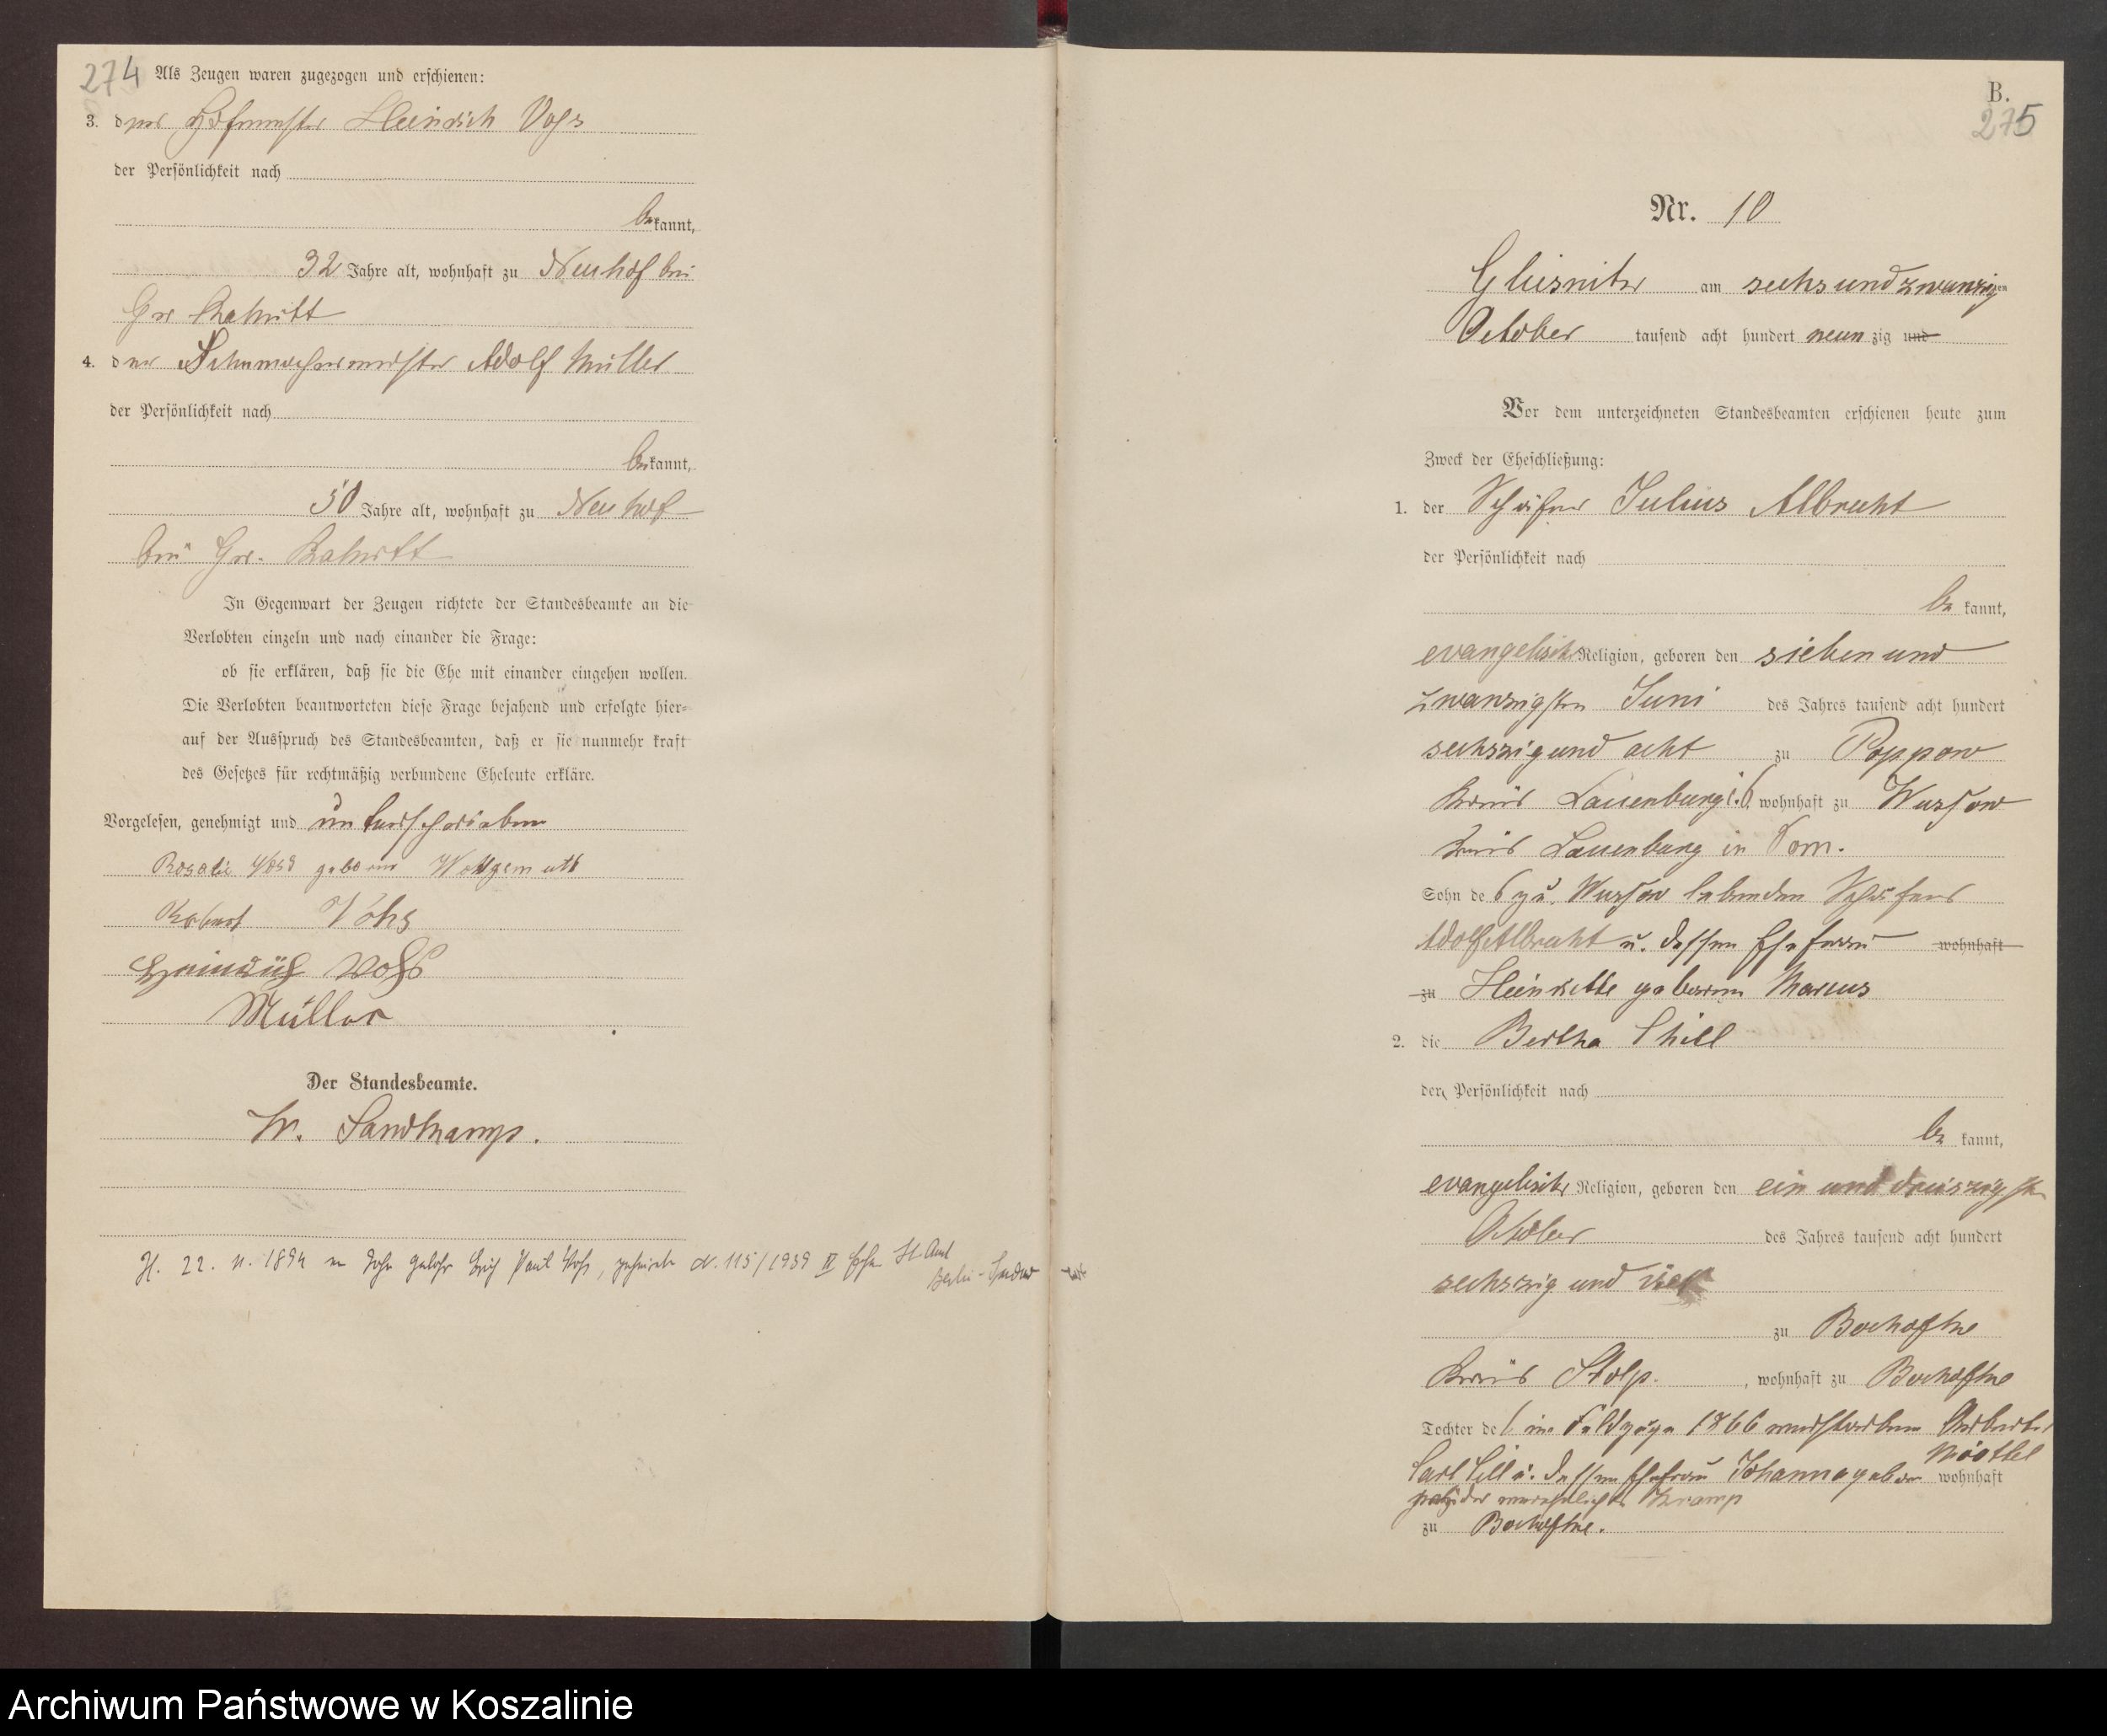 274
Als Zeugen waren zugezogen und erschienen:
3. der Hofmeister Heinrich Vohs
der Persönlichkeit nach
bekannt,
32 Jahre alt, wohnhaft zu Neuhof bei
Gr Rakitt
4. der Schumachermeister Adolf Müller
der Persönlichkeit nach
bekannt,
50 Jahre alt, wohnhaft zu Neuhof
bei Gr. Rakitt
In Gegenwart der Zeugen richtete der Standesbeamte an die
Verlobten einzeln und nach einander die Frage:
ob sie erklären, daß sie die Ehe mit einander eingehen wollen.
Die Verlobten beantworteten diese Frage bejahend und erfolgte hier-
auf der Ausspruch des Standesbeamten, daß er sie nunmehr kraft
des Gesetzes für rechtmäßig verbundene Eheleute erkläre.
Vorgelesen, genehmigt und unterschrieben
Rosalie geboren Wohlgemuth
Robert Vohs
Heinrich Vohs
Müller
Der Standesbeamte.
W. Sandkamp.
22. 11. 1894 Sohn Erich Paul Vohs, N. 115/1939 St. Amt
Berlin-
B.
275
Nr. 10
Gliesnitz am sechsundzwanzigen
October tausend acht hundert neunzig und
Vor dem unterzeichneten Standesbeamten erschienen heute zum
Zweck der Eheschließung:
1. der Schäfer Julius Albrecht
der Persönlichkeit nach
bekannt,
evangelischer Religion, geboren den siebenund
zwanzigsten Juni des Jahres tausend acht hundert
sechszigund acht zu Poppow
Kreis Lauenburg i. P, wohnhaft zu Wussow
Kreis Lauenburg in Pom.
Sohn des zu Wussow lebenden Schäfers
Adolf Albrecht u. dessen Ehefrau wohnhaft
zu Henriette geborene Marcus
2. die Bertha Thiel
der Persönlichkeit nach
bekannt,
evangelischer Religion, geboren den ein und dreiszigsten
October des Jahres tausend acht hundert
sechszig und vier
zu Bochofke
Kreis Stolp., wohnhaft zu Bochofke
Tochter des im Feldzuge 1866 verstorbenen Arbeiter
Carl u. dessen Ehefrau Johanna geboren wohnhaft
verehelichte Kramp
zu Bochofke.
Archiwum Państwowe w Koszalinie